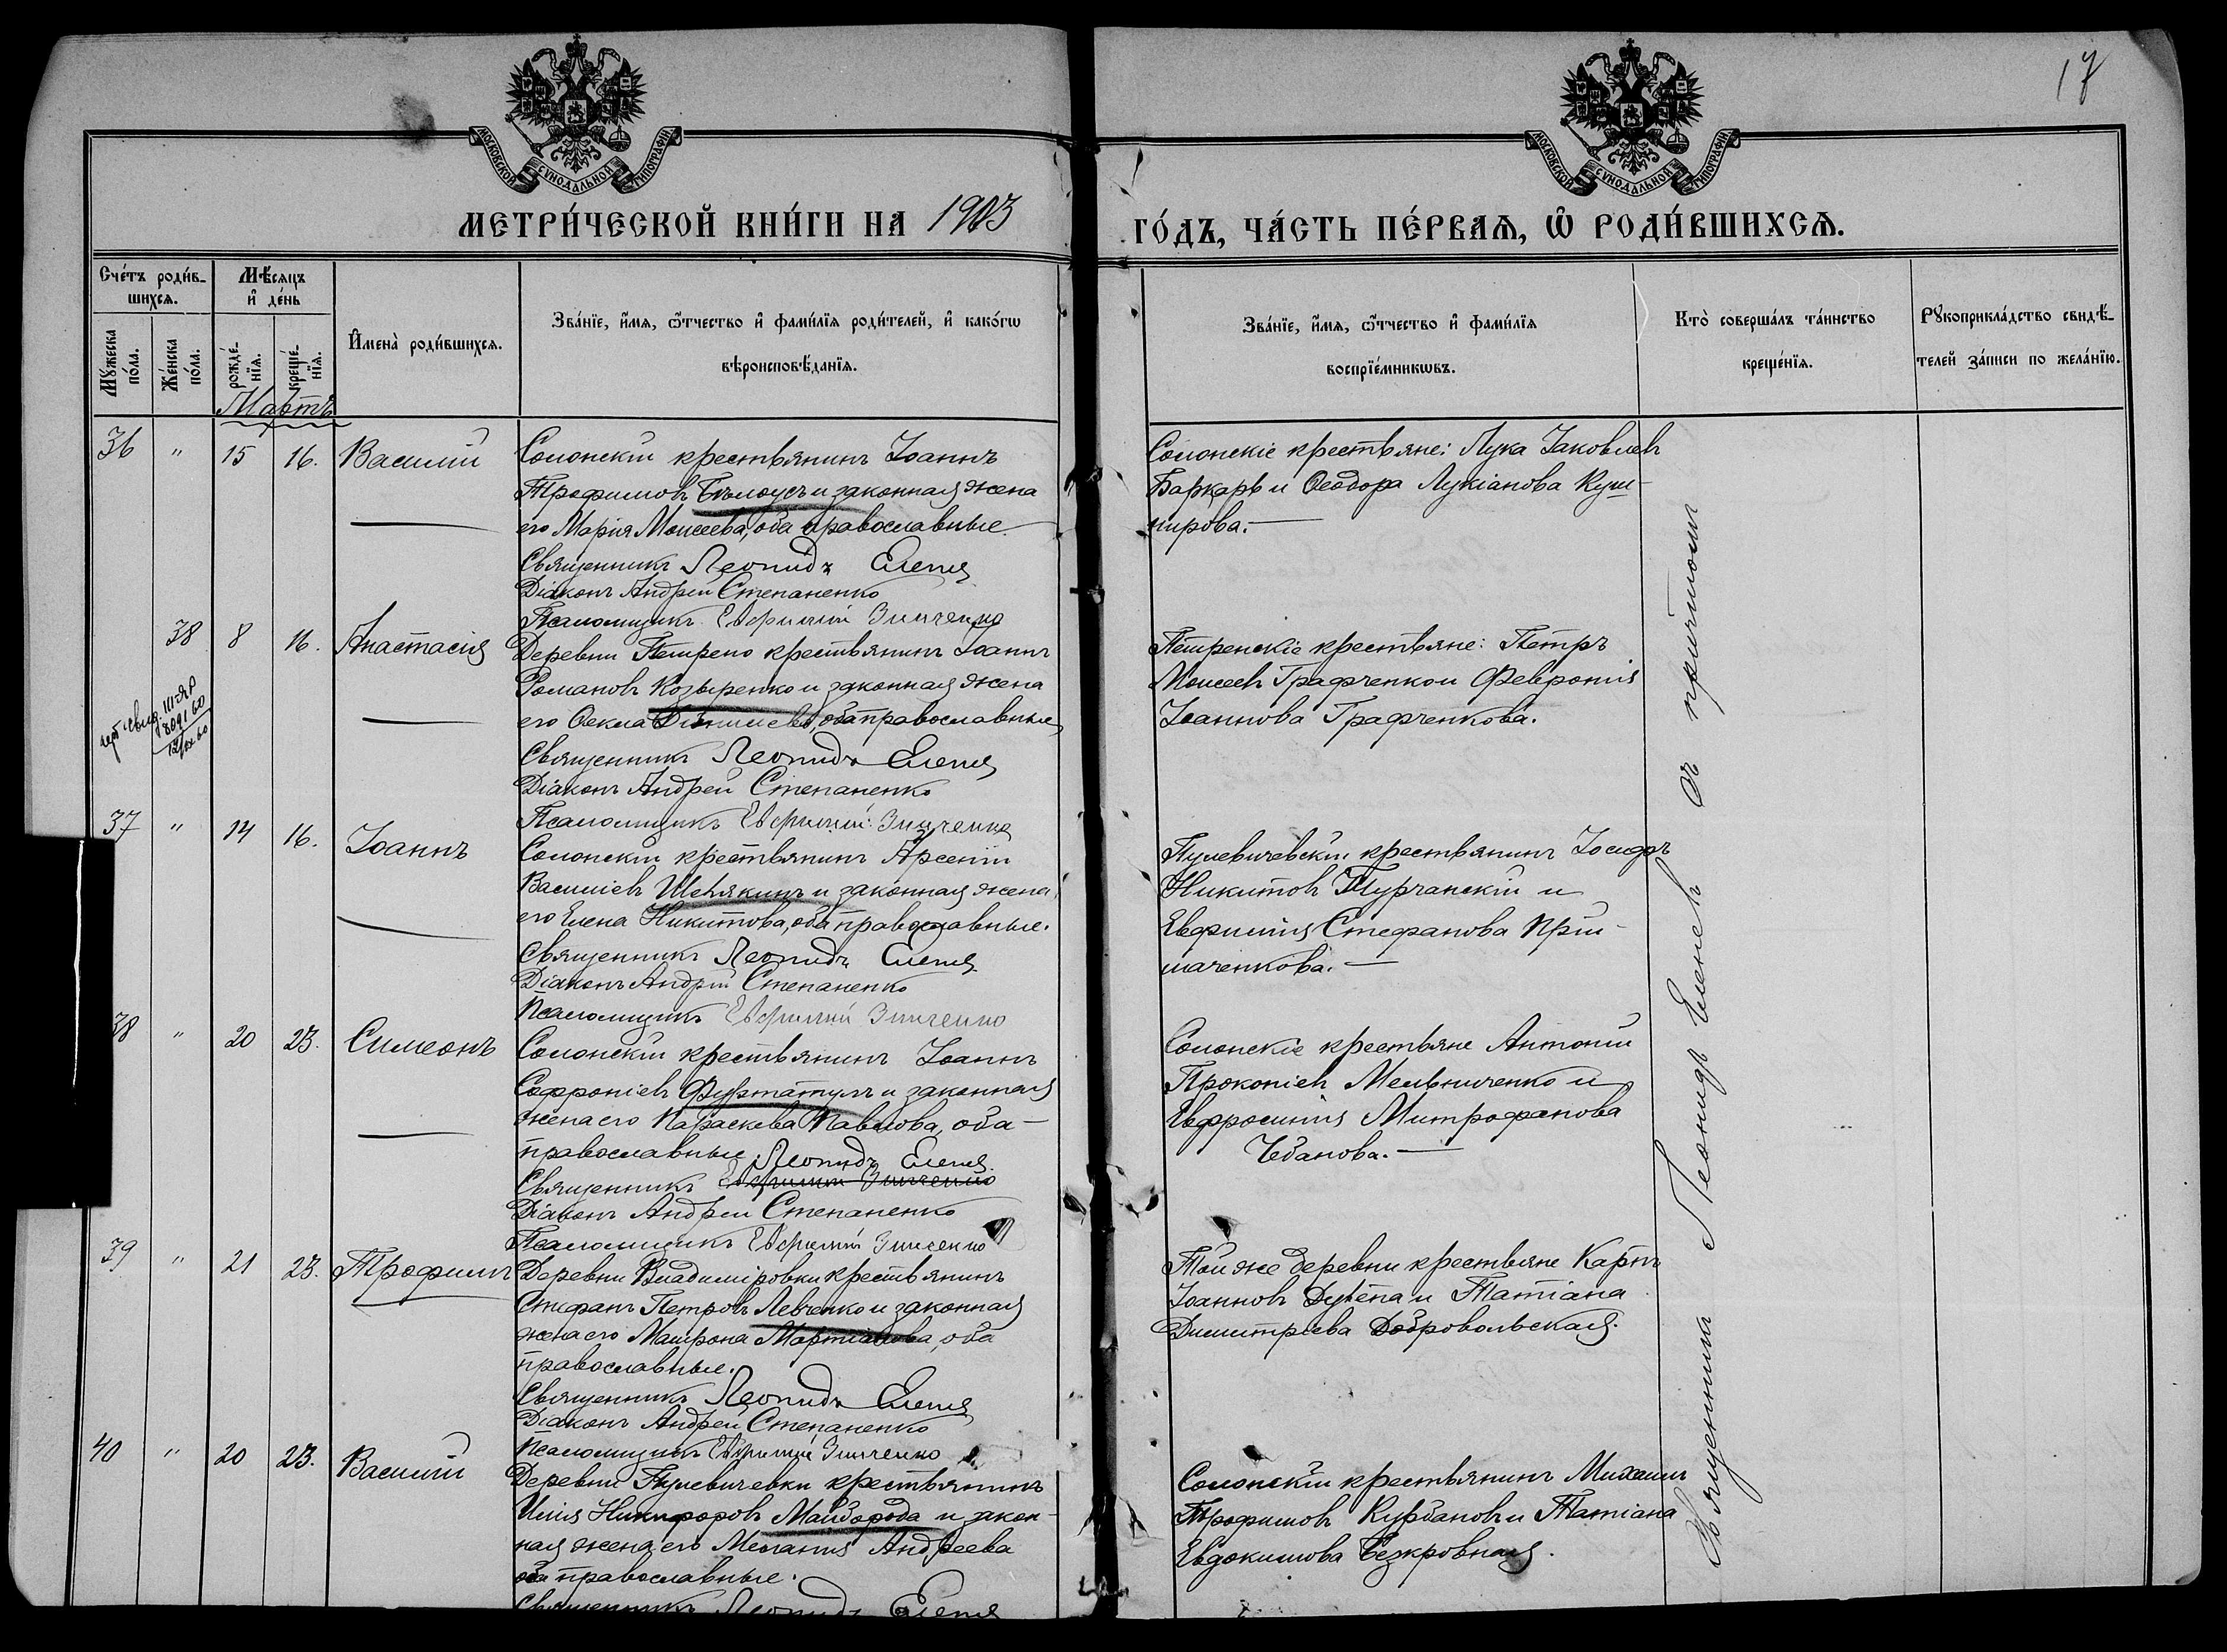 17
МОСКОВСКОЙ СѴНОДАЛЬНОЙ ТИПОГРАФІИ
МОСКОВСКОЙ СѴНОДАЛЬНОЙ ТИПОГРАФІИ
МЕТРИ́ЧЕСКОЙ КНИ́ГИ НА 1903
ГО́ДЪ, ЧА́СТЬ ПЕ́РВАѦ, Ѡ҆ РОДИ́ВШИХСѦ.
Сче́тъ роди́в-
шихсѧ.
Мꙋ́жеска по́ла.
Же́нска по́ла.
Мѣ́сѧцъ
и҆ де́нь
рожде́-
нїѧ.
креще́-
нїѧ.
И҆мена̀ роди́вшихсѧ.
Зва́нїе, и҆́мѧ, ѻ҆́тчество и҆ фами́лїѧ роди́телей, и҆ како́гѡ
вѣроисповѣ́данїѧ.
Зва́нїе, и҆́мѧ, ѻ҆́тчество и҆ фами́лїѧ
воспрїе́мникѡвъ.
Кто̀ соверша́лъ та́инство
креще́нїѧ.
Рꙋкоприкла́дство свидѣ́-
телей за́писи по жела́нїю.
Мартъ
36 " 15 16. Василій
Солонскій крестьянинъ Іоаннъ
Трофимовъ Бѣлоусъ и законная жена
его Марія Моисеева, оба православные.
Священникъ Леонидъ Еленев
Діаконъ Андрей Степаненко
Псаломщикъ Евфимій Зинченко
Солонскіе крестьяне: Лука Іаковлевъ
Баркарь и Ѳеодора Лукіанова Куш-
нирова.
38 8 16. Анастасія
Деревни Петрено крестьянинъ Іоаннъ
Романовъ Козыренко и законная жена
его Ѳекла оба православные
Священникъ Леонидъ Еленев
Діаконъ Андрей Степаненко
Псаломщикъ Евфимій Зинченко
Петренскіе крестьяне: Петръ
Моисеевъ Графченко и Февронія
Іоаннова Графченкова.
37 " 14 16. Іоаннъ
Солонскій крестьянинъ Арсеній
Василіевъ Шевякинъ и законная жена
его Елена Никитова, оба православные.
Священникъ Леонидъ Еленев
Діаконъ Андрей Степаненко
Псаломщикъ Евфимій Зинченко
Пулевичевскій крестьянинъ Іосифъ
Никитовъ Турчанскій и
Евфимія Стефанова При-
маченкова.
38 " 20 23. Симеонъ
Солонскій крестьянинъ Іоаннъ
Софроніевъ Фуртатулъ и законная
жена его Параскева Павлова, оба
православные. Леонидъ Еленев.
Священникъ Евфимій Зинченко
Діаконъ Андрей Степаненко
Псаломщикъ Евфимій Зинченко
Солонскіе крестьяне Антоній
Прокопіевъ Мельниченко и
Евфросинія Митрофанова
Чебанова.
39 " 21 23. Трофимъ
Деревни Владиміровки крестьянинъ
Стефанъ Петровъ Левченко и законная
жена его Матрона Мартіанова, оба
православные.
Священникъ Леонидъ Еленев
Діаконъ Андрей Степаненко
Псаломщикъ Евфимій Зинченко
Той же деревни крестьяне Карпъ
Іоанновъ и Татіана
Димитріева Добровольская.
40 " 20 23. Василій
Деревни Пулевичевки крестьянинъ
Илія Никифоровъ Майборода и закон-
ная жена его Меланія Андреева
оба православные.
Священникъ Леонидъ Еленев
Солонскій крестьянинъ Михаилъ
Трофимовъ Курбановъ и Татіана
Евдокимова Безкровная.
Священникъ Леонидъ Еленевъ съ причтомъ